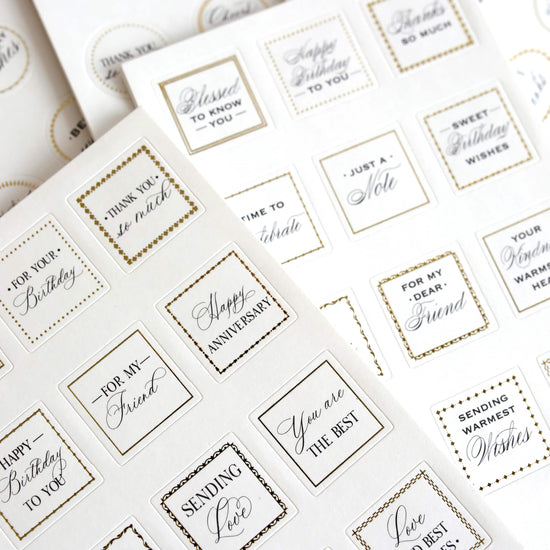 THANK YOU
so
Thanks
SO MUCH
Happy
Birthday
TO YOU
Blessed
TO KNOW
YOU
SWEET
Birthday
WISHES
JUST A
Note
TIME TO
Celebrate
YOUR
FOR MY
DEAR
Friend
SENDING
WARMEST
Wishes
THANK YOU
so much
FOR YOUR
Birthday
Happy
ANNIVERSARY
FOR MY
Friend
You are
THE BEST
HAPPY
Birthday
TO YOU
SENDING
Love
Love